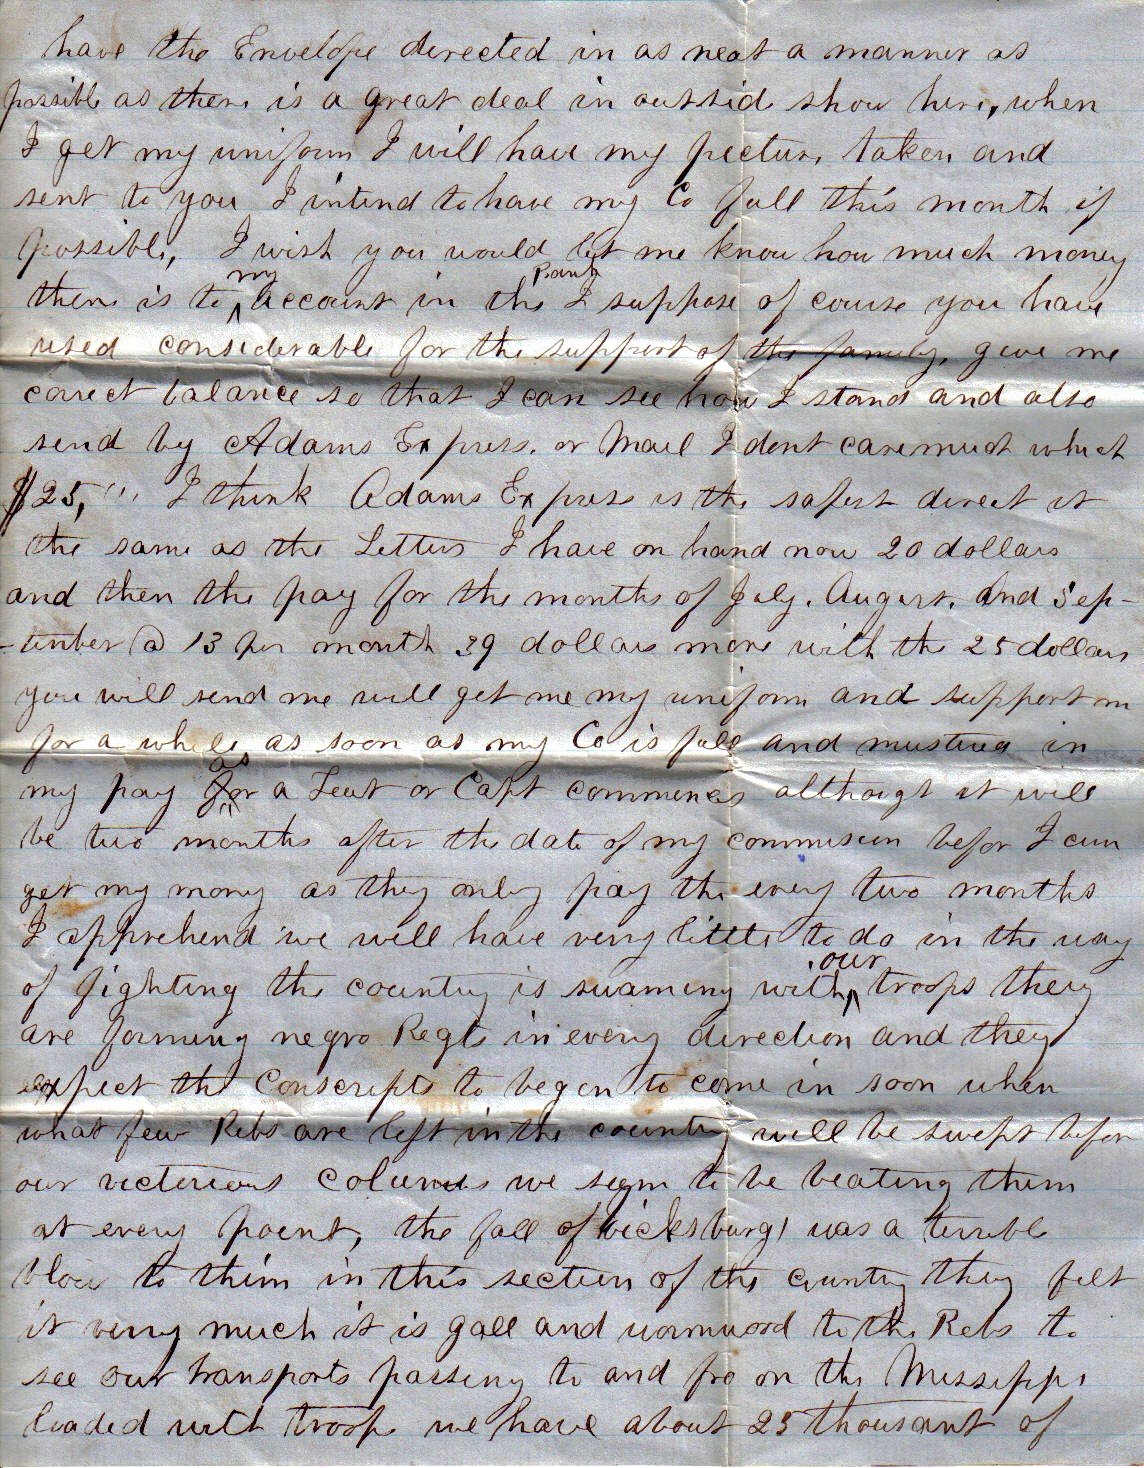 have the Envelope directed in as neat a manner as
possible as there is a great deal in outsid show here, when
I get my uniform I will have my picture taken and
sent to you I intend to have my Co full this month if
possible, I wish you would let me know how much money
there is to my account in the Bank I suppose of course you have
used considerable for the support of the family, give me
correct balance so that I can see how I stand and also
send by Adams Express. or Mail I dont care much which
$25, I think Adams Express is the safest direct it
the same as the Letters I have on hand now 20 dollars
and then the pay for the months of July. August. And Sep-
-tember @ 13 per month 39 dollars more with the 25 dollars
you will send me will get me my uniform and support m
for a while, as soon as my Co is full and mustered in
my pay as for a Leut or Capt commences althoug it will
be two months after the date of my commision befor I can
get my money as they only pay the every two months
I apprehend we will have very little to do in the way
of fighting the country is swarming with our troops they
are forming negro Regts in every direction and they
expect the Conscripts to began to come in soon when
what few Rebs are left in the country will be swept befor
our victorious columns we seem to be beating them
at every point, the fall of vicksburg was a terrible
blow to them in this section of the country they felt
it verry much it is gall and wormwood to the Rebs to
see our transports passing to and fro on the Missippi
loaded with troops we have about 25 thousant of